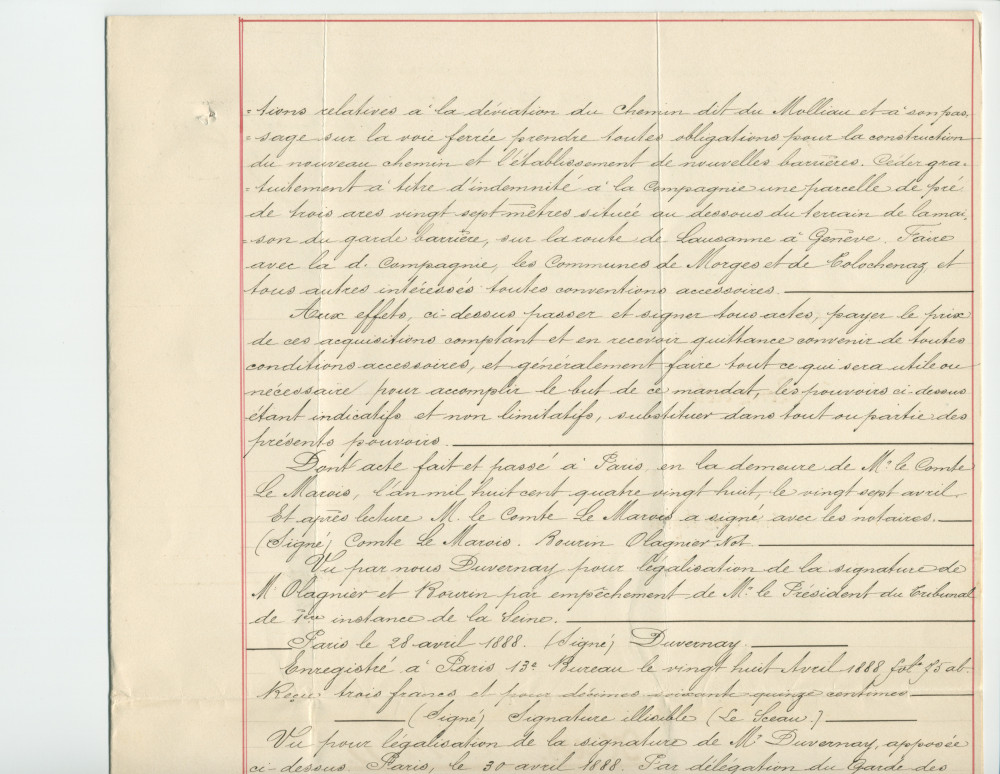 =tions relatives à la déviation du chemin dit du Molliau et à son pas,
=sage sur la voie ferrée prendre toutes obligations pour la construction
du nouveau chemin et l'établissement de nouvelles barrières. Céder gra-
=tuitement à titre d'indemnité à la Compagnie une parcelle de pré
de trois ares vingt sept mètres située au dessous du terrain de la mai,
=son du garde barrière, sur la route de Lausanne à Genève. Faire
avec la d. Compagnie, les Communes de Morges et de Tolochenaz et
tous autres intéressés toutes conventions accessoires.
Aux effets, ci-dessus passer et signer tous actes, payer le prix
de ces acquisitions comptant et en recevoir quittance convenir de toutes
conditions accessoires, et généralement faire tout ce qui sera utile ou
nécessaire pour accomplir le but de ce mandat, les pouvoirs ci-dessus
étant indicatifs et non limitatifs, substituer dans tout ou partie des
présents pouvoirs.
Dont acte fait et passé à Paris, en la demeure de Mr le Comte
Le Marois, l'an mil huit cent quatre vingt huit, le vingt sept avril.
Et après lecture M. le Comte Le Marois a signé avec les notaires.
(Signé) Comte Le Marois. Bourin Olagnier Not.
Vu par nous Duvernay pour légalisation de la signature de
M. Olagnier et Bourin par empêchement de Mr le Président du Tribunal
de 1ère instance de la Seine.
Paris le 28 avril 1888. (Signé) Duvernay.
Enregistré à Paris 13e Bureau le vingt huit Avril 1888
Reçu trois francs et pour décimes soixante quinze centimes
(Signé) Signature illisible (Le Sceau.)
Vu pour légalisation de la signature de Mr Duvernay, apposée
ci-dessus. Paris, le 30 avril 1888. Par délégation du Garde des